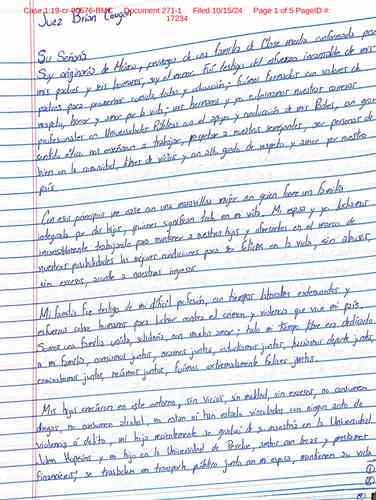 Case 1:19-cr-00576-BMC Document 271-1 Filed 10/15/24 Page 1 of 5 PageID #: 17234
Juez Brian Cougan
Su Señoría
Soy originario de México, provengo de una familia de Clase media conformada por
mis padres y seis hermanos, soy el menor. Fui testigo del esfuerzo incansable de mis
padres para proveernos comida, techo y educación; fuimos formados con valores de
respeto, honor y amor por la vida; mis hermanos y yo culminamos nuestras carreras
profesionales en Universidades Públicas con el apoyo y conducción de mis Padres, con gran
sentido ético, nos enseñaron a trabajar, respetar a nuestros semejantes, ser personas de
bien en la comunidad, libres de vicios y con alto grado de respeto y amor por nuestro
país.
Con esos principios me casé con una maravillosa mujer en quien formé una familia
integrada por dos hijos, quienes significan todo en mi vida. Mi esposa y yo
incansablemente trabajando para mantener a nuestros hijos y ofrecerles en el marco de
nuestras posibilidades las mejores condiciones para ser felices en la vida, sin abusos,
sin excesos, acorde a nuestros ingresos.
Mi familia fue testigo de mi difícil profesión, con tiempos laborales extenuantes y
esfuerzos sobre humanos para luchar contra el crimen y violencia que vive mi país.
Somos una familia unida, solidaria, con mucho amor; todo mi tiempo libre era dedicado
a mi familia, comíamos juntos, orábamos juntos, estudiábamos juntos, hacíamos deporte juntos,
caminábamos juntos, reíamos juntos, fuimos extremadamente felices juntos.
Mis hijos crecieron en este entorno, sin vicios, sin maldad, sin excesos, no consumen
drogas, no consumen alcohol, no están ni han estado vinculados con ningún acto de
violencia o delito, mi hija recientemente se graduó de su maestría en la Universidad
John Hopkins y mi hijo en la Universidad de Purdue, ambos con becas y préstamos
financieros; se trasladan en transporte público junto con mi esposa, mantienen su vida